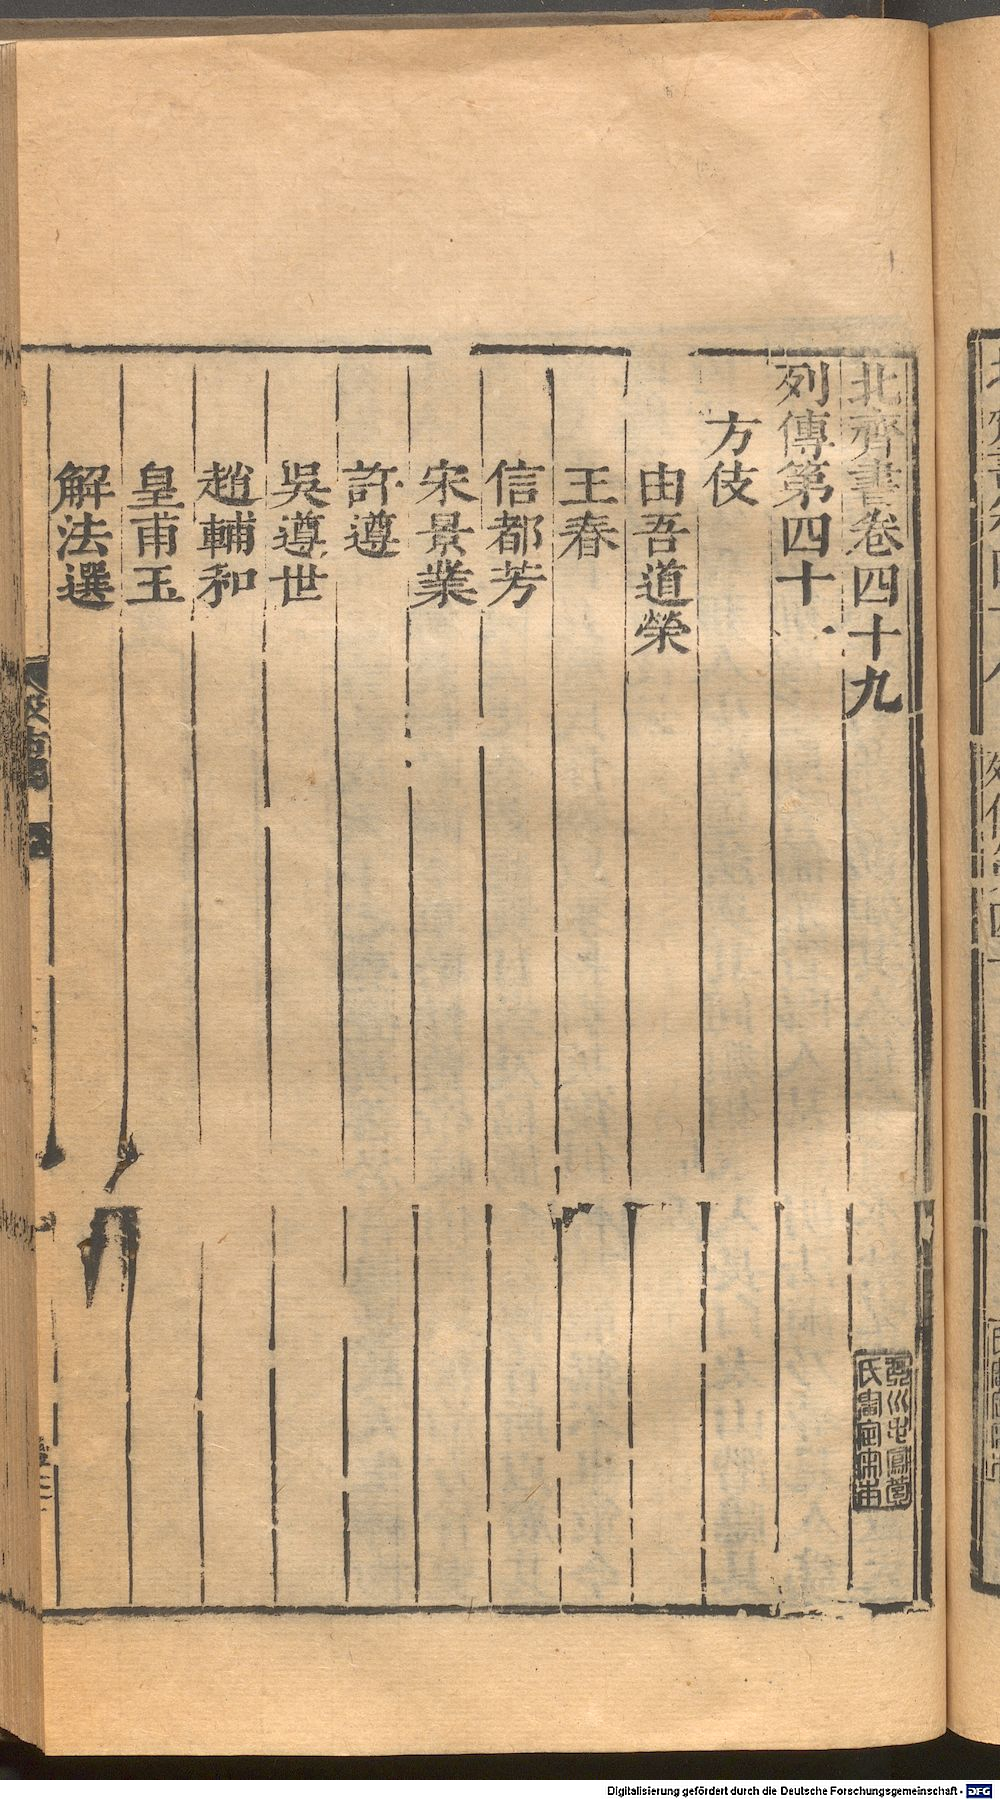 北齊書卷四十九
列傳第四十一
方伎
由吾道榮
王春
信都芳
宋景業
許遵
吳遵世
趙輔和
皇甫玉
解法選
Digitalisierung gefördert durch die Deutsche Forschungsgemeinschaft - DFG